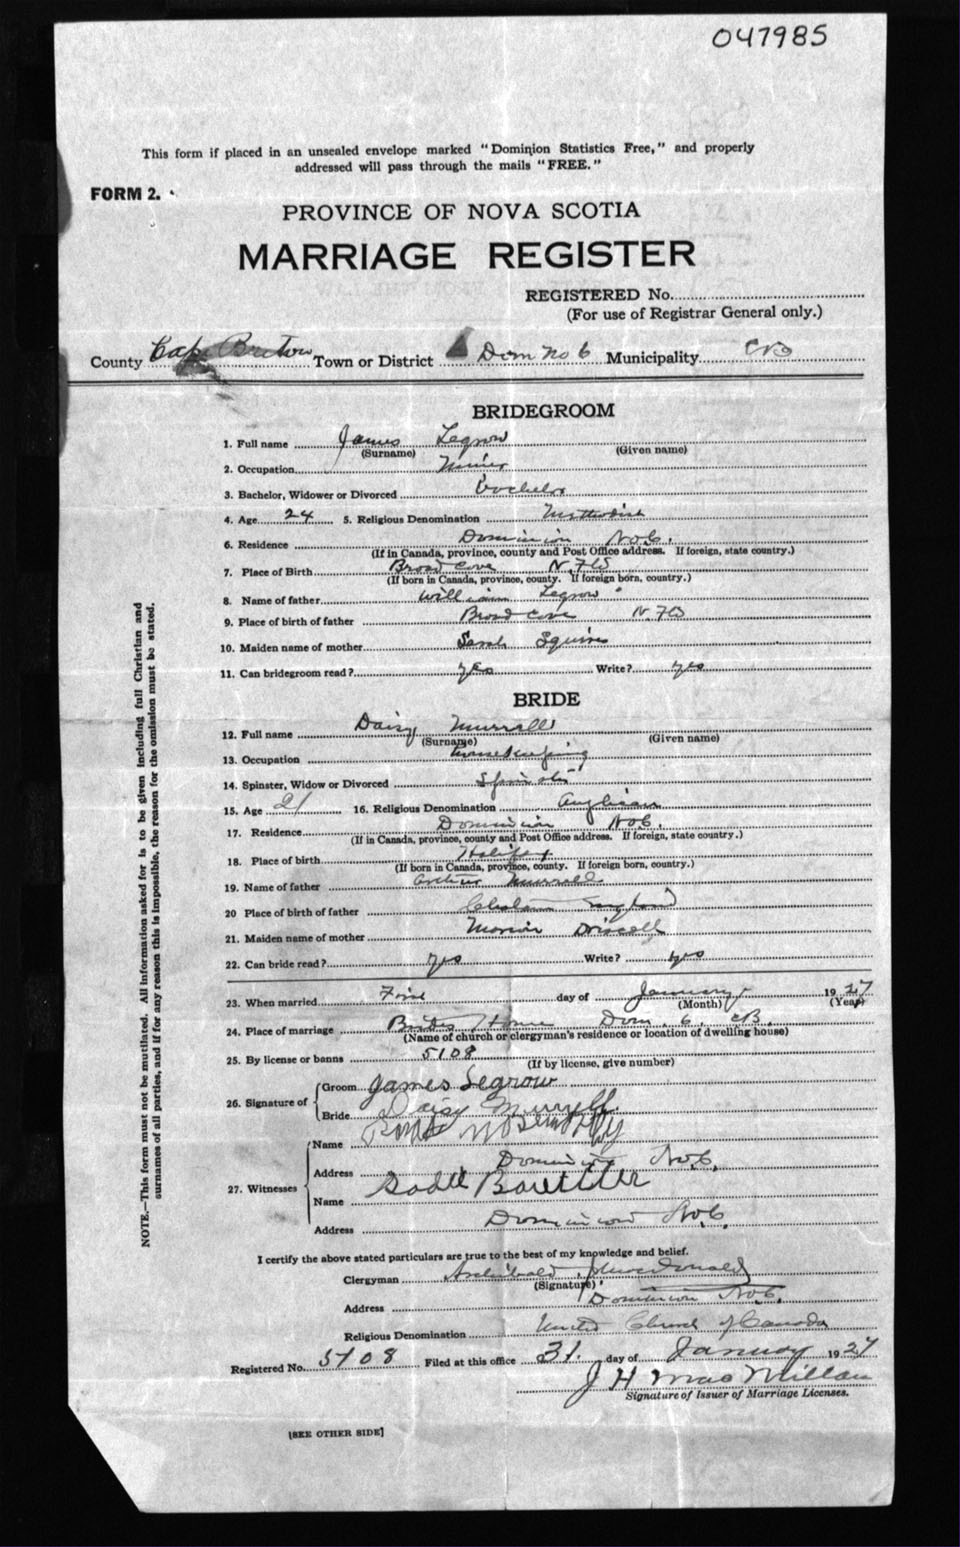 047985
This form if placed in an unsealed envelope marked "Dominion Statistics Free," and properly
addressed will pass through the mails "FREE."
FORM 2.
PROVINCE OF NOVA SCOTIA
MARRIAGE REGISTER
REGISTERED No.
(For use of Registrar General only.)
County Cape Breton Town or District Dom No 6 Municipality CB
BRIDEGROOM
1. Full name James Legrow
(Surname) (Given name)
2. Occupation Miner
3. Bachelor, Widower or Divorced bachelor
4. Age 24 5. Religious Denomination Methodist
6. Residence Dominion No 6.
(If in Canada, province, county and Post Office address. If foreign, state country.)
7. Place of Birth Broad Cove Nfld
(If born in Canada, province, county. If foreign born, country.)
8. Name of father William Legrow
9. Place of birth of father Broad Cove Nfld
10. Maiden name of mother Sarah Squires
11. Can bridegroom read? yes Write? yes
BRIDE
12. Full name Daisy Murrell
(Surname) (Given name)
13. Occupation housekeeping
14. Spinster, Widow or Divorced Spinster
15. Age 21 16. Religious Denomination Anglican
17. Residence Dominion No 6.
(If in Canada, province, county and Post Office address. If foreign, state country.)
18. Place of birth Halifax
(If born in Canada, province, county. If foreign born, country.)
19. Name of father Arthur Murrell
20 Place of birth of father England
21. Maiden name of mother Driscoll
22. Can bride read? yes Write? yes
23. When married day of January 1927
(Month) (Year)
24. Place of marriage Brides Home Dom. 6. CB.
(Name of church or clergyman's residence or location of dwelling house)
25. By license or banns 5108
(If by license, give number)
26. Signature of Groom James Legrow
Bride Daisy Murrell
27. Witnesses Name
Address Dominion No 6.
Name Sadie
Address Dominion No 6.
I certify the above stated particulars are true to the best of my knowledge and belief.
Clergyman Archibald J MacDonald
(Signature)
Address Dominion No 6.
Religious Denomination United Church of Canada
Registered No. 5108 Filed at this office 31. day of January 1927
J H MacMillan
Signature of Issuer of Marriage Licenses.
[SEE OTHER SIDE]
NOTE.—This form must not be mutilated. All information asked for is to be given including full Christian and
surnames of all parties, and if for any reason this is impossible, the reason for the omission must be stated.